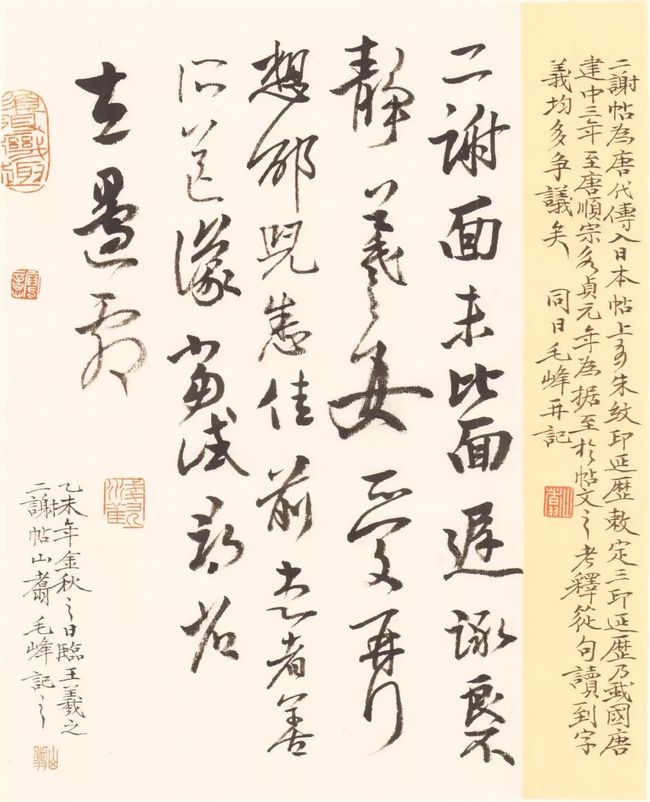 二謝帖為唐代傳入日本帖上有朱紋印延歷敕定三印延歷乃我國唐
建中三年至唐順宗永貞元年為据至於帖文之考釋從句讀到字
義均多争議矣 同日毛峰再記
二謝面未比面遲詠良不
靜羲之女愛再拜
想邰兒悉佳前患者善
所送議當試尋省
左邊劇
乙未年金秋之日臨王羲之
二謝帖山翥毛峰記之